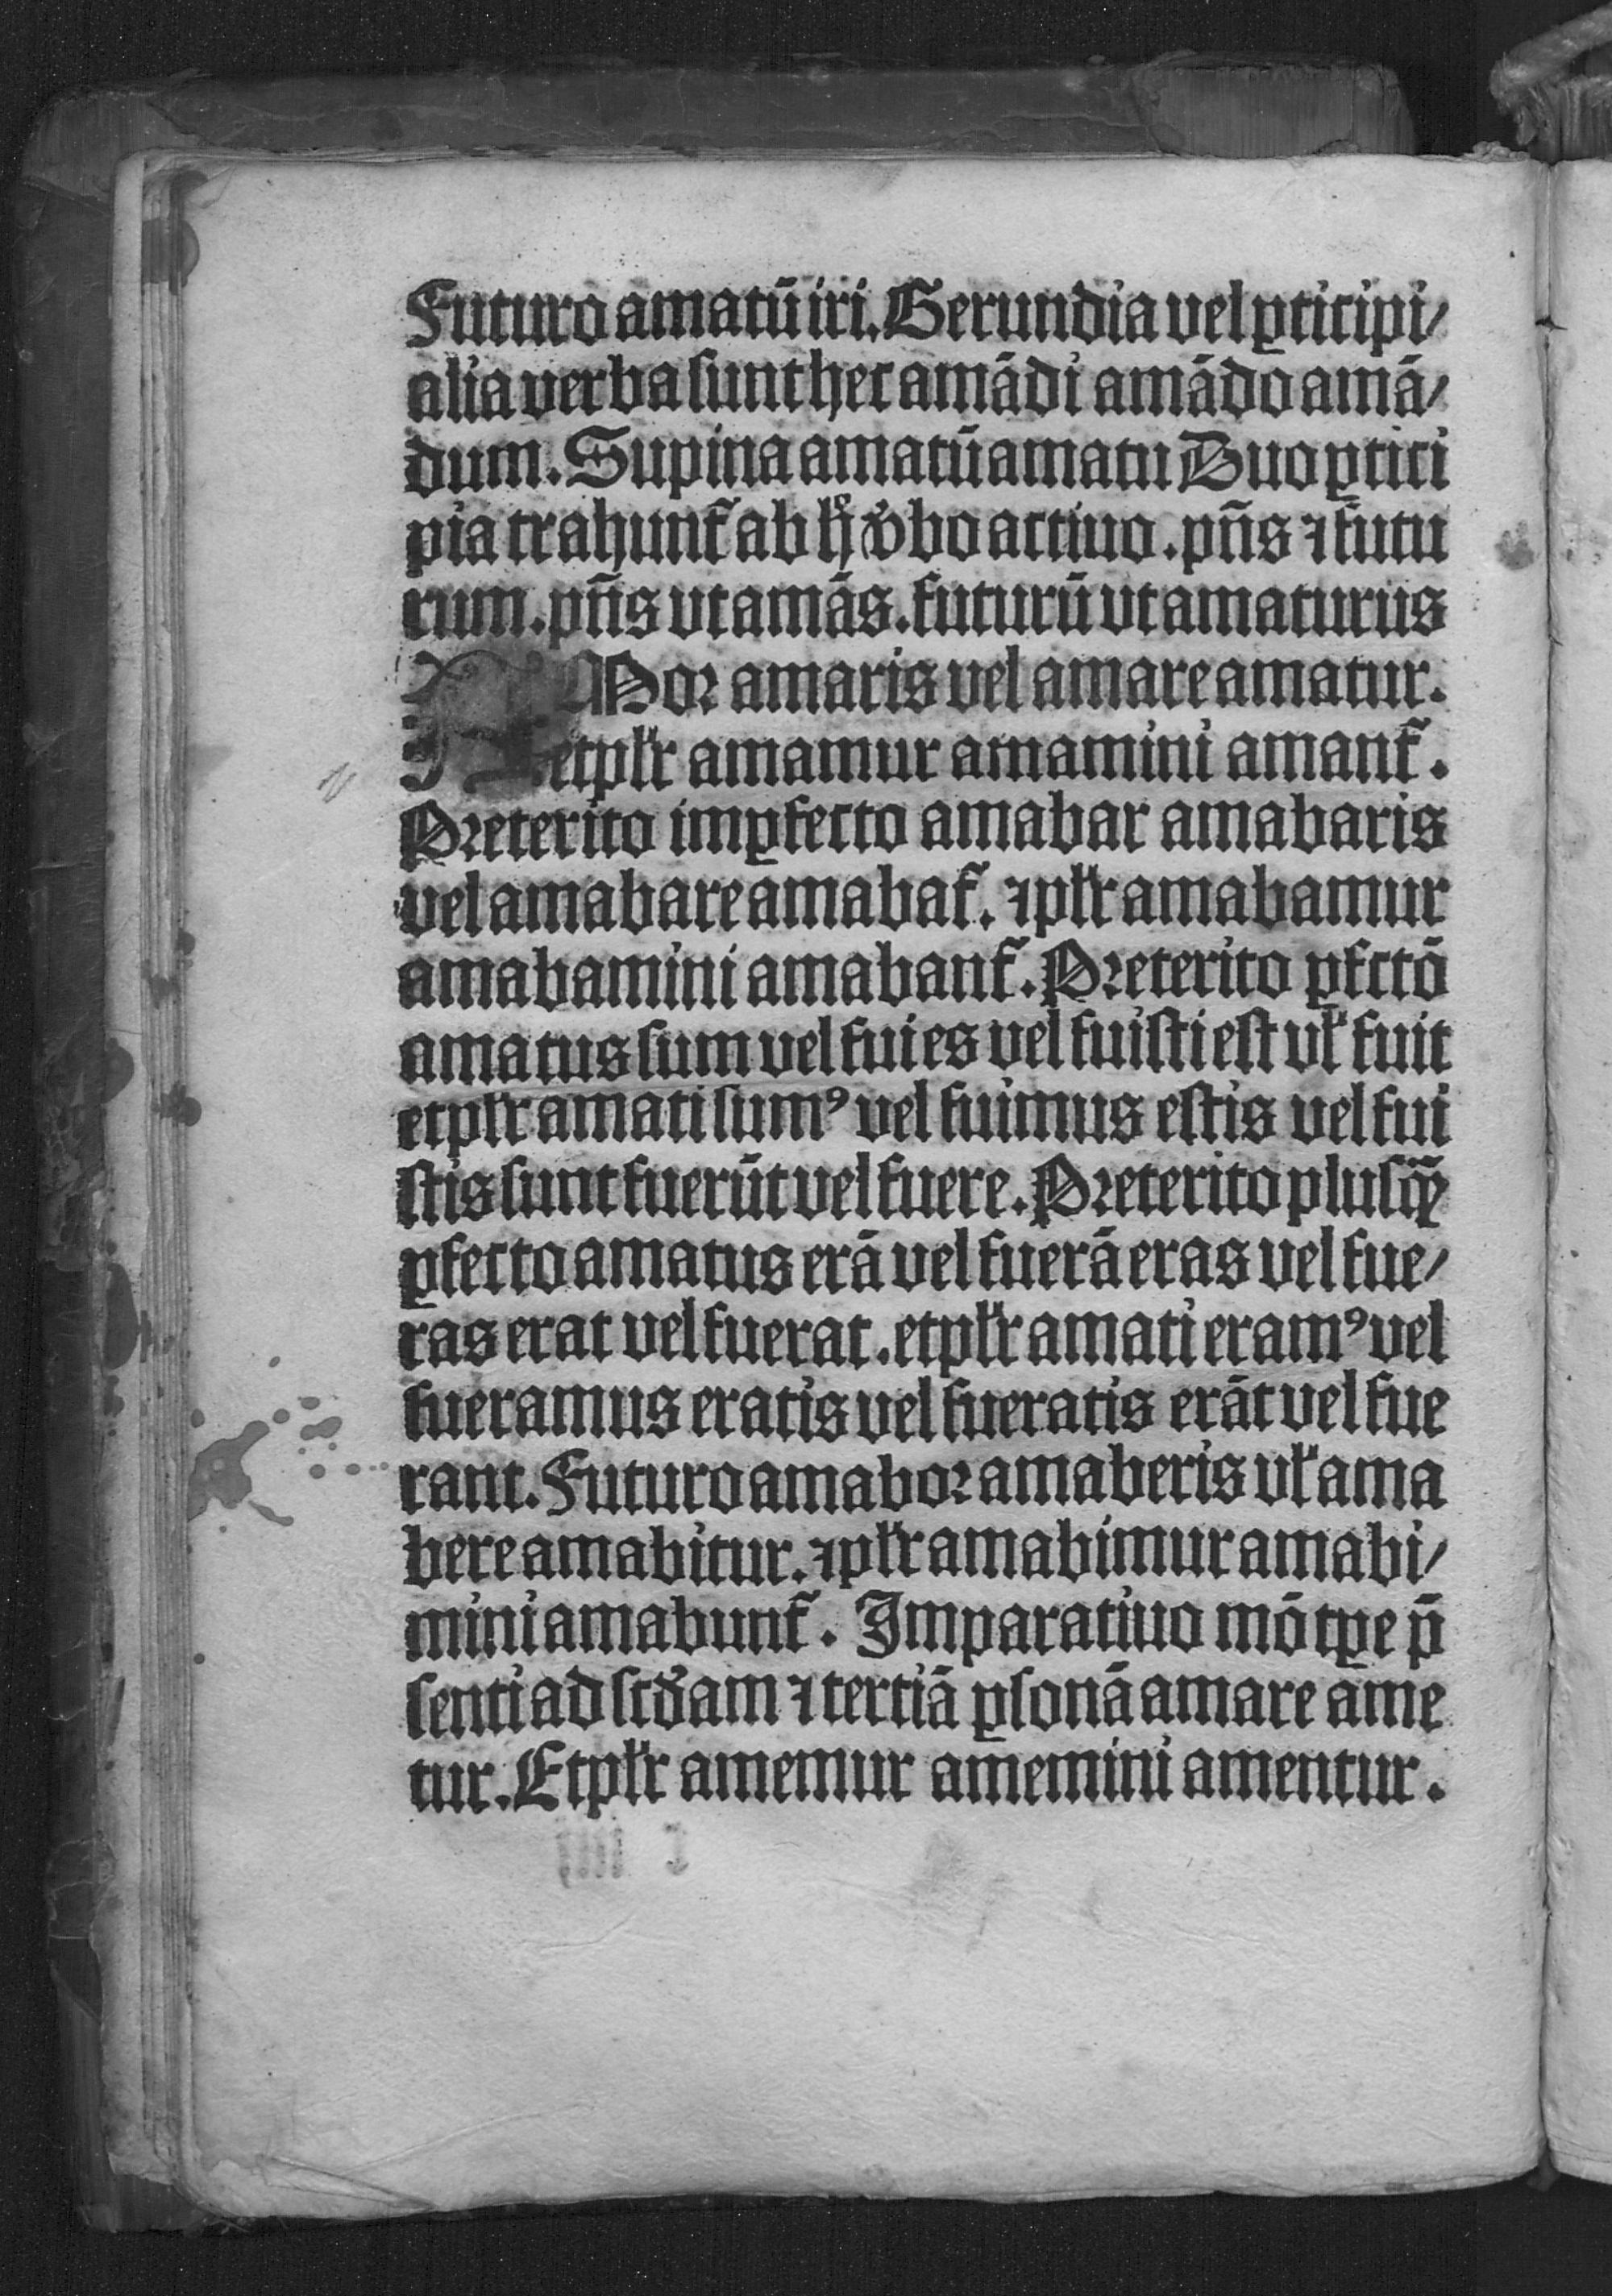 Futuro amatū iri. Gerundia vel ꝑticipi/
alia verba sunt hec amādi amādo amā/
dum. Supina amatū amatu Duo ꝑtici
pia trahunt᷑ ab hͦ v̓bo actiuo. pn̄s ⁊ futu
rum. pn̄s vt amās. futurū vt amaturus
AMor amaris vel amare amatur.
et pl̓r amamur amamini amant᷑.
Preterito imꝑfecto amabar amabaris
vel amabare amabat᷑. ⁊ pl̓r amabamur
amabamini amabant᷑. Preterito ꝑfctō
amatus sum vel fui es vel fuisti est vl̓ fuit
et pl̓r amati sumꝰ vel fuimus estis vel fui
stis sunt fuerūt vel fuere. Preterito plusq̄ꝫ
ꝑfecto amatus erā vel fuerā eras vel fue/
ras erat vel fuerat. et pl̓r amati eramꝰ vel
fueramus eratis vel fueratis erāt vel fue
rant. Futuro amabor amaberis vl̓ ama
bere amabitur. ⁊ pl̓r amabimur amabi/
mini amabunt᷑. Imparatiuo mō tꝑe p̄
senti ad scd̓am ⁊ tertiā ꝑsonā amare ame
tur. Et pl̓r amemur amemini amentur.